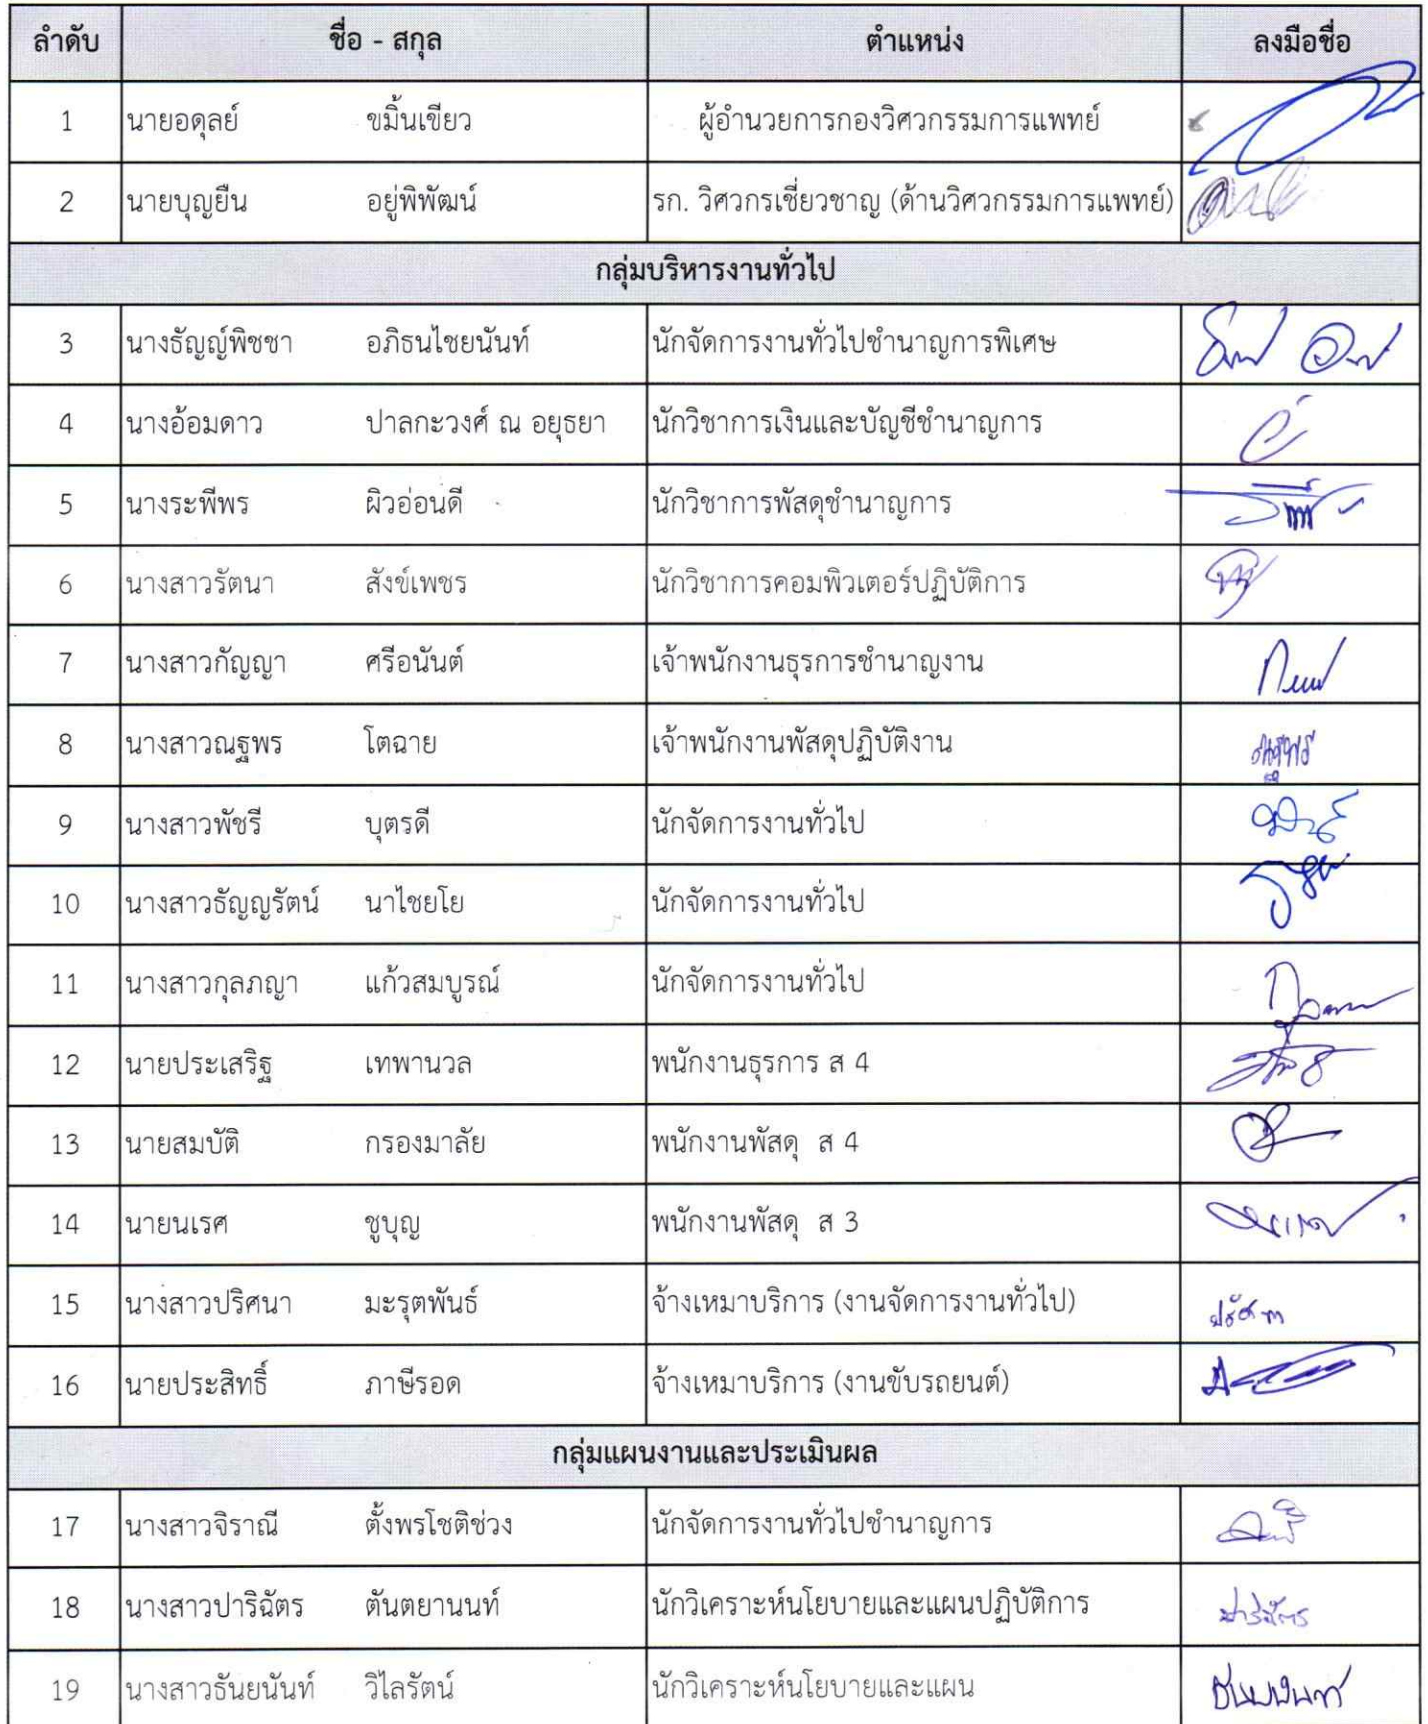 ลำดับ ชื่อ - สกุล ตำแหน่ง ลงมือชื่อ
1 นายอดุลย์ ขมิ้นเขียว ผู้อำนวยการกองวิศวกรรมการแพทย์
2 นายบุญยืน อยู่พิพัฒน์ รก. วิศวกรเชี่ยวชาญ (ด้านวิศวกรรมการแพทย์)
กลุ่มบริหารงานทั่วไป
3 นางธัญญ์พิชชา อภิธนไชยนันท์ นักจัดการงานทั่วไปชำนาญการพิเศษ
4 นางอ้อมดาว ปาลกะวงศ์ ณ อยุธยา นักวิชาการเงินและบัญชีชำนาญการ
5 นางระพีพร ผิวอ่อนดี นักวิชาการพัสดุชำนาญการ
6 นางสาวรัตนา สังข์เพชร นักวิชาการคอมพิวเตอร์ปฏิบัติการ
7 นางสาวกัญญา ศรีอนันต์ เจ้าพนักงานธุรการชำนาญงาน
8 นางสาวณฐพร โตฉาย เจ้าพนักงานพัสดุปฏิบัติงาน
9 นางสาวพัชรี บุตรดี นักจัดการงานทั่วไป
10 นางสาวธัญญรัตน์ นาไชยโย นักจัดการงานทั่วไป
11 นางสาวกุลภญา แก้วสมบูรณ์ นักจัดการงานทั่วไป
12 นายประเสริฐ เทพานวล พนักงานธุรการ ส 4
13 นายสมบัติ กรองมาลัย พนักงานพัสดุ ส 4
14 นายนเรศ ชูบุญ พนักงานพัสดุ ส 3
15 นางสาวปริศนา มะรุตพันธ์ จ้างเหมาบริการ (งานจัดการงานทั่วไป)
16 นายประสิทธิ์ ภาษีรอด จ้างเหมาบริการ (งานขับรถยนต์)
กลุ่มแผนงานและประเมินผล
17 นางสาวจิราณี ตั้งพรโชติช่วง นักจัดการงานทั่วไปชำนาญการ
18 นางสาวปาริฉัตร ตันตยานนท์ นักวิเคราะห์นโยบายและแผนปฏิบัติการ ปาริฉัตร
19 นางสาวธันยนันท์ วิไลรัตน์ นักวิเคราะห์นโยบายและแผน ธันยนันท์